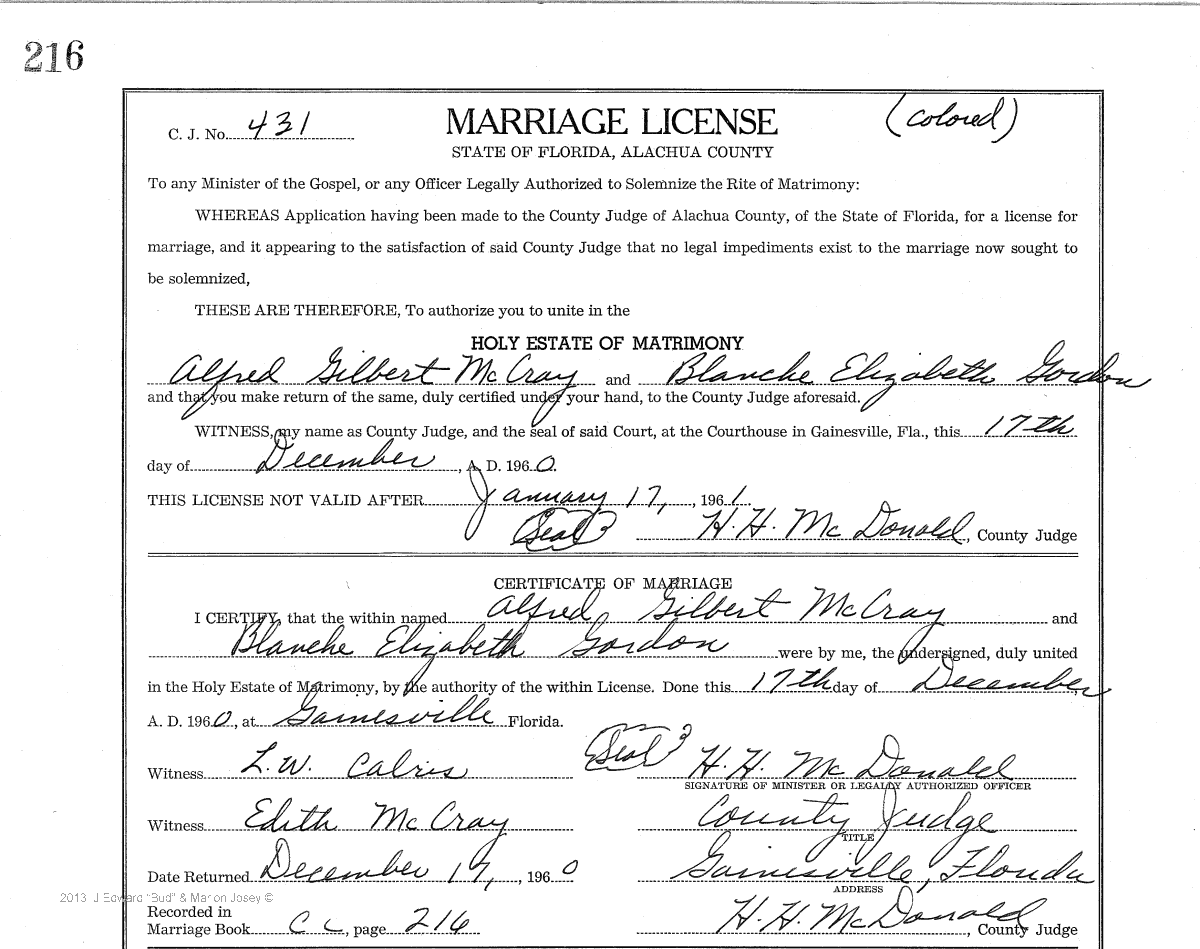 216
C. J. No. 431 MARRIAGE LICENSE (colored)
STATE OF FLORIDA, ALACHUA COUNTY
To any Minister of the Gospel, or any Officer Legally Authorized to Solemnize the Rite of Matrimony:
WHEREAS Application having been made to the County Judge of Alachua County, of the State of Florida, for a license for
marriage, and it appearing to the satisfaction of said County Judge that no legal impediments exist to the marriage now sought to
be solemnized,
THESE ARE THEREFORE, To authorize you to unite in the
HOLY ESTATE OF MATRIMONY
Alfred Gilbert McCray and Blanche Elizabeth Gordon
and that you make return of the same, duly certified under your hand, to the County Judge aforesaid.
WITNESS, my name as County Judge, and the seal of said Court, at the Courthouse in Gainesville, Fla., this 17th
day of December, A. D. 1960.
THIS LICENSE NOT VALID AFTER January 17, 1961.
(Seal) H. H. McDonald, County Judge
CERTIFICATE OF MARRIAGE
I CERTIFY, that the within named Alfred Gilbert McCray and
Blanche Elizabeth Gordon were by me, the undersigned, duly united
in the Holy Estate of Matrimony, by the authority of the within License. Done this 17th day of December
A. D. 1960, at Gainesville Florida.
Witness L. W. (Seal) H. H. McDonald
SIGNATURE OF MINISTER OR LEGALLY AUTHORIZED OFFICER
Witness Edith McCray County Judge
TITLE
Date Returned December 17, 1960 Gainesville, Florida
ADDRESS
2013 J Edward "Bud" & Marion Josey ©
Recorded in
Marriage Book CC, page 216 H. H. McDonald, County Judge